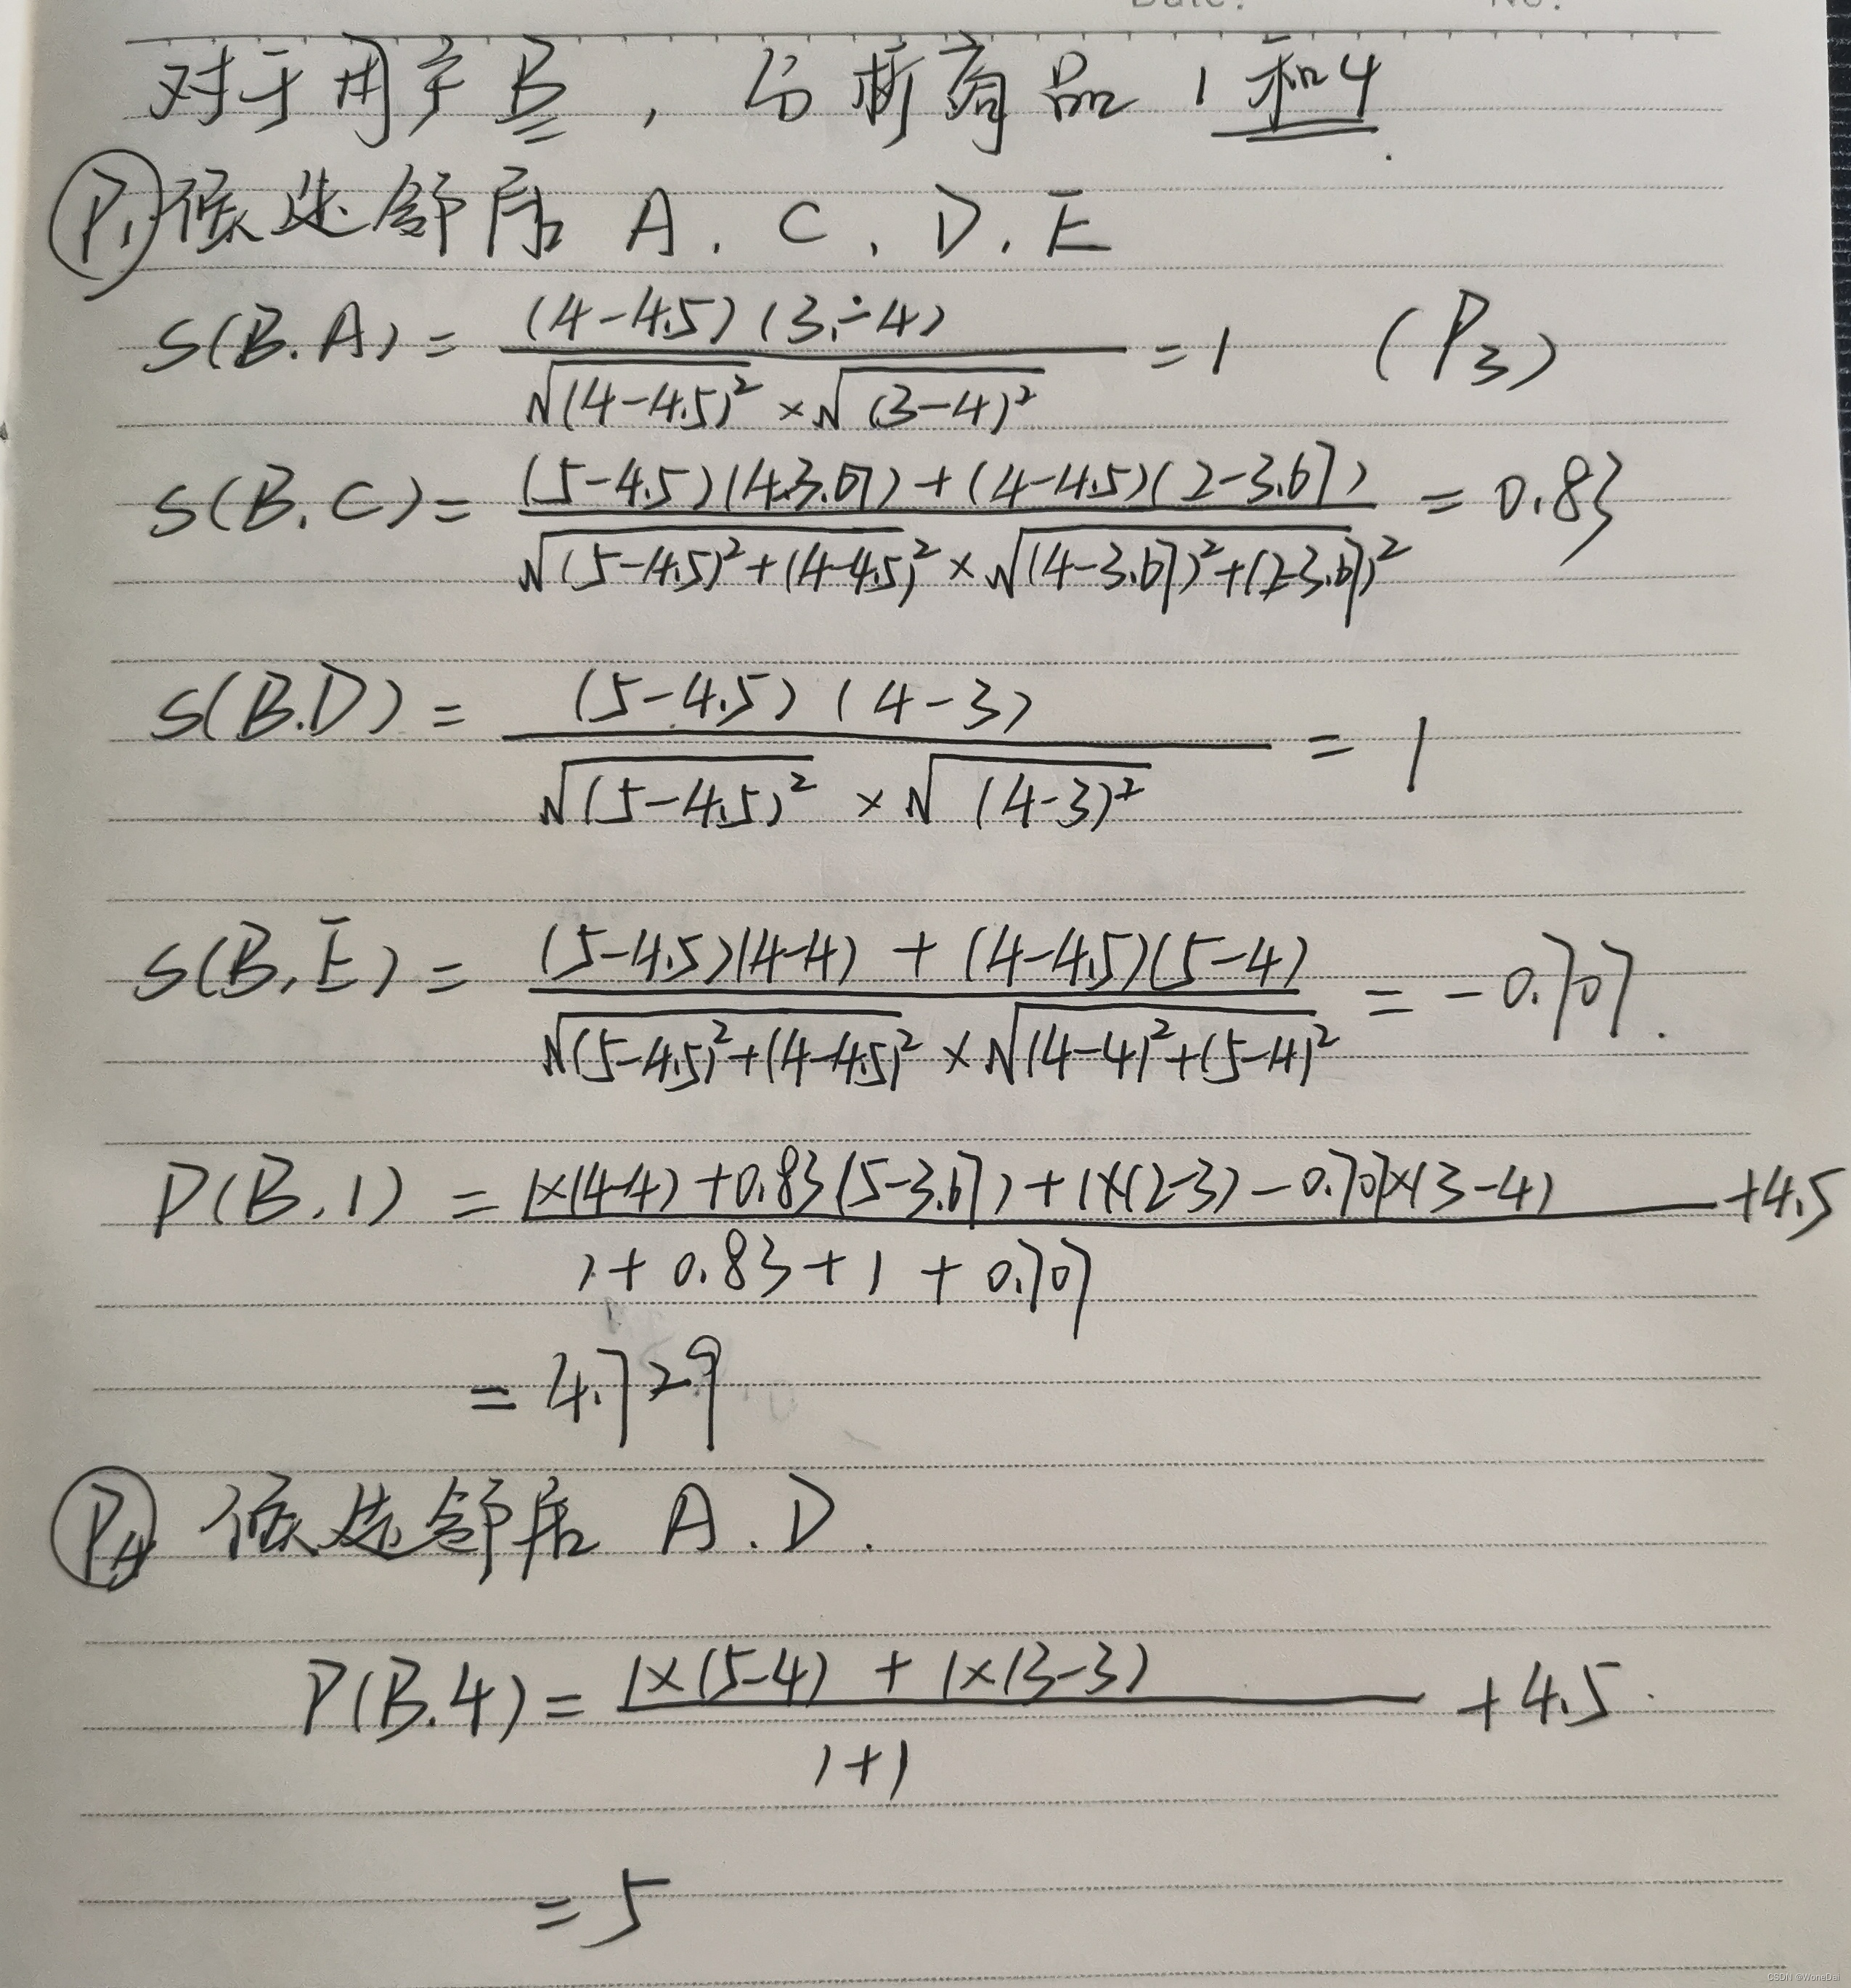 Date. No.
对于用户B，分析商品1和4.
P₁ 候选邻居 A. C. D. E
S(B.A) = (4-4.5)(3-4) / √(4-4.5)² × √(3-4)² = 1 (P₃)
S(B.C) = (5-4.5)(4-3.67)+(4-4.5)(2-3.67) / √(5-4.5)²+(4-4.5)² × √(4-3.67)²+(2-3.67)² = 0.83
S(B.D) = (5-4.5)(4-3) / √(5-4.5)² × √(4-3)² = 1
S(B,E) = (5-4.5)(4-4) + (4-4.5)(5-4) / √(5-4.5)²+(4-4.5)² × √(4-4)²+(5-4)² = -0.707.
P(B,1) = 1×(4-4)+0.83(5-3.67)+1×(2-3)-0.707×(3-4) / 1+0.83+1+0.707 +4.5
= 4.729
P₄ 候选邻居 A.D.
P(B.4) = 1×(5-4) + 1×(3-3) / 1+1 +4.5.
= 5
CSDN @WoneDai